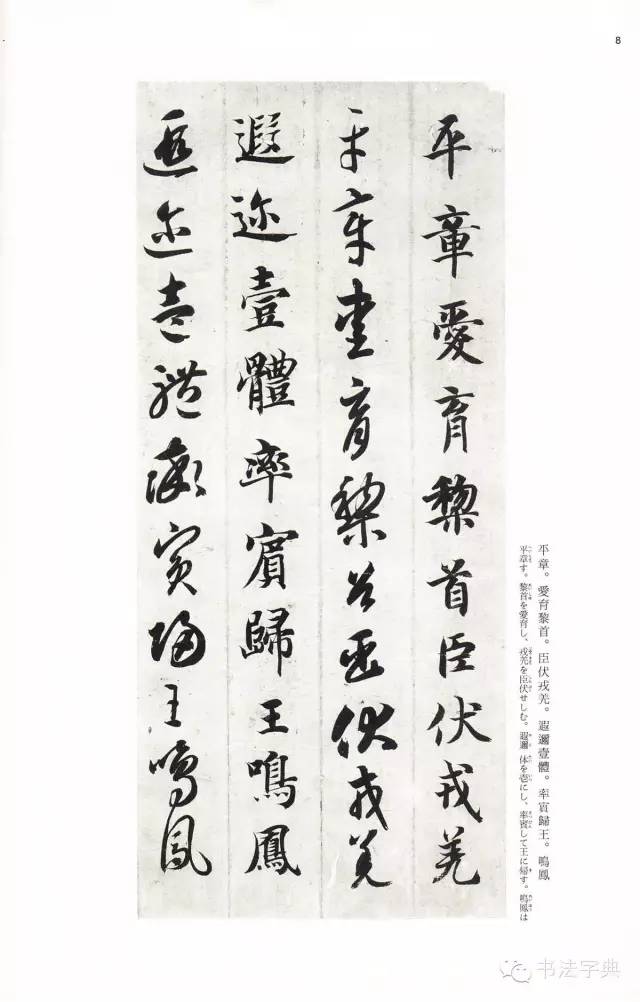 8
平章愛育黎首臣伏戎羌
平章愛育黎首臣伏戎羌
遐迩壹體率賓歸王鳴鳳
遐迩壹體率賓歸王鳴鳳
平章。愛育黎首。臣伏戎羌。遐邇壹體。率賓歸王。鳴鳳
平章す。黎首を愛育し、戎羌を臣伏せしむ。遐邇 体を壱にし、率賓して王に帰す。鳴鳳は
书法字典